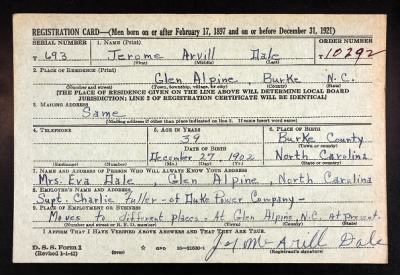 REGISTRATION CARD—(Men born on or after February 17, 1897 and on or before December 31, 1921)
SERIAL NUMBER 1. NAME (Print) ORDER NUMBER
T 693 Jerome Arvill Dale T 10292
(First) (Middle) (Last)
2. PLACE OF RESIDENCE (Print)
Glen Alpine, Burke N.C.
(Number and street) (Town, township, village, or city) (County) (State)
[THE PLACE OF RESIDENCE GIVEN ON THE LINE ABOVE WILL DETERMINE LOCAL BOARD
JURISDICTION; LINE 2 OF REGISTRATION CERTIFICATE WILL BE IDENTICAL]
3. MAILING ADDRESS
Same
[Mailing address if other than place indicated on line 2. If same insert word same]
4. TELEPHONE 5. AGE IN YEARS 6. PLACE OF BIRTH
39 Burke County
DATE OF BIRTH (Town or county)
December 27 1902 North Carolina
(Exchange) (Number) (Mo.) (Day) (Yr.) (State or country)
7. NAME AND ADDRESS OF PERSON WHO WILL ALWAYS KNOW YOUR ADDRESS
Mrs. Eva Dale, Glen Alpine, North Carolina
8. EMPLOYER'S NAME AND ADDRESS
Supt. Charlie Fuller - of Duke Power Company -
9. PLACE OF EMPLOYMENT OR BUSINESS
Moves to different places - At Glen Alpine, N.C. At Present.
(Number and street or R. F. D. number) (Town) (County) (State)
I AFFIRM THAT I HAVE VERIFIED ABOVE ANSWERS AND THAT THEY ARE TRUE.
D. S. S. Form 1
(Revised 1-1-42) GPO Dale